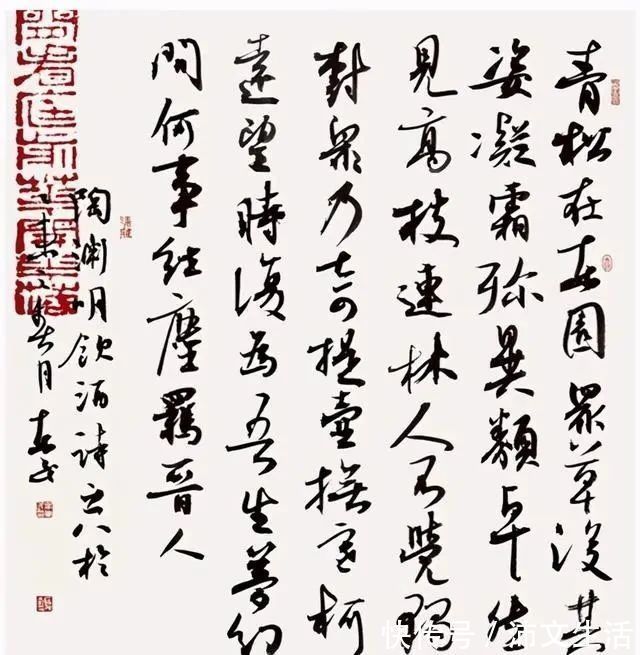 青松在東園眾草沒其
姿凝霜殄異類卓然
見高枝連林人不覺獨
樹眾乃奇提壺撫寒柯
遠望時復為吾生夢幻
間何事紲塵羈晉人
陶淵明飲酒詩之八於
月
快传号 / 文生活